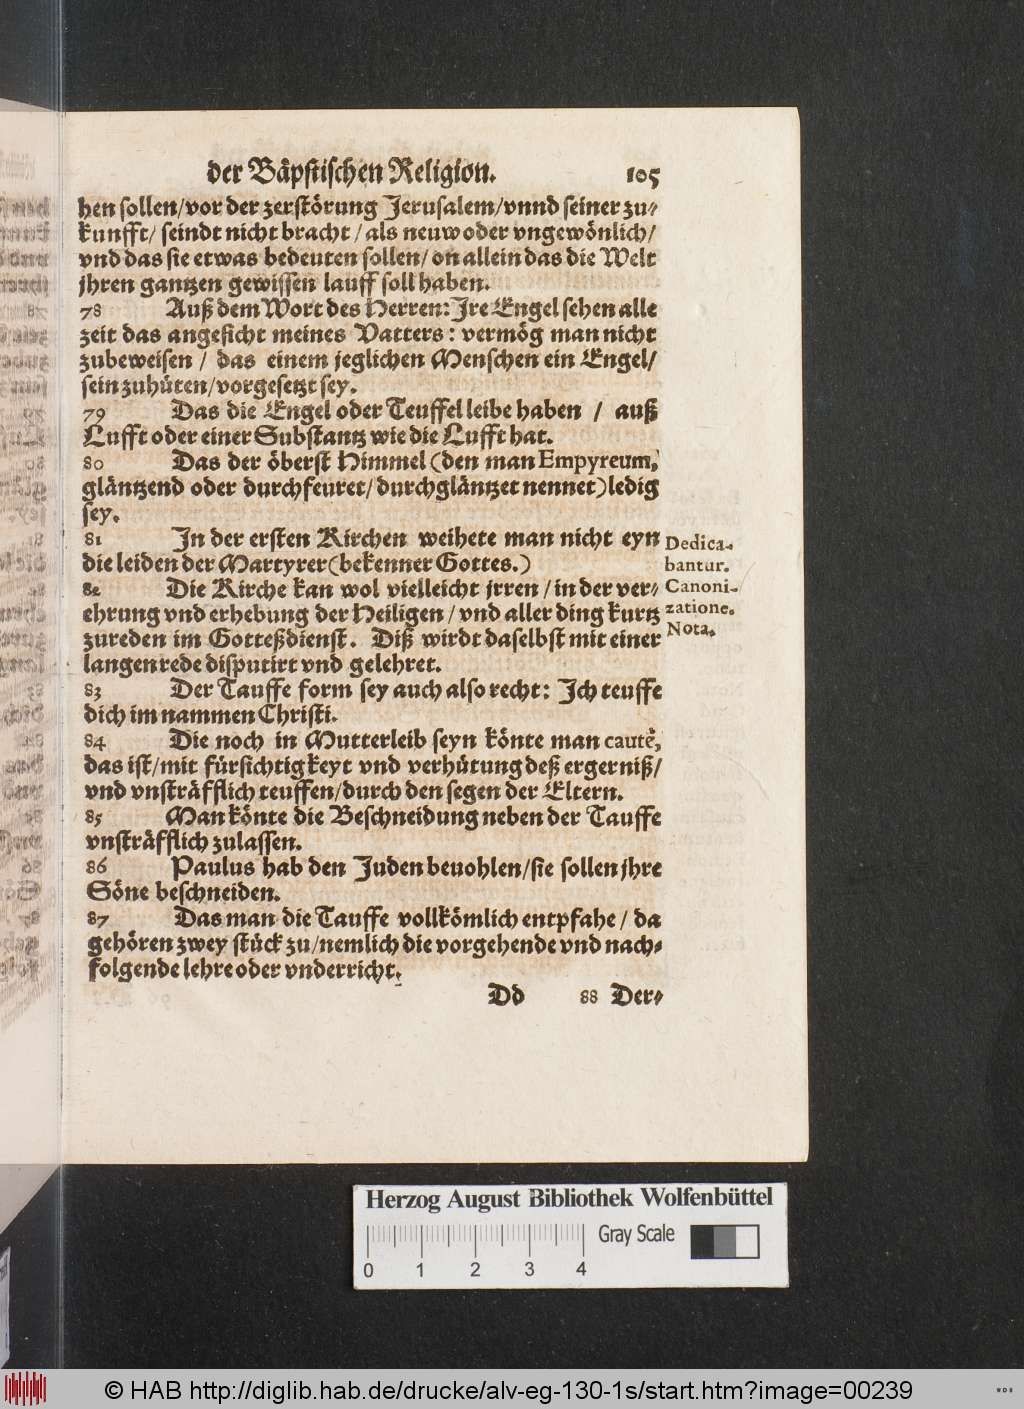 der Bäpstischen Religion. 105
hen sollen/vor der zerstörung Jerusalem/vnnd seiner zu⸗
kunfft/ seindt nicht bracht / als neuw oder vngewönlich/
vnd das sie etwas bedeuten sollen/ on allein das die Welt
jhren gantzen gewissen lauff soll haben.
78 Auß dem Wort des Herren: Jre Engel sehen alle
zeit das angesicht meines Vatters: vermög man nicht
zubeweisen / das einem jeglichen Menschen ein Engel/
sein zuhüten/vorgesetzt sey.
79 Das die Engel oder Teuffel leibe haben / auß
Lufft oder einer Substantz wie die Lufft hat.
80 Das der öberst Himmel (den man Empyreum,
gläntzend oder durchfeuret/ durchgläntzet nennet) ledig
sey.
81 In der ersten Kirchen weihete man nicht eyn
die leiden der Martyrer (bekenner Gottes.)
Dedica-
bantur.
82 Die Kirche kan wol vielleicht jrren / in der ver⸗
ehrung vnd erhebung der Heiligen / vnd aller ding kurtz
zureden im Gotteßdienst. Diß wirdt daselbst mit einer
langen rede disputirt vnd gelehret.
Canoni-
zatione.
Nota.
83 Der Tauffe form sey auch also recht: Jch teuffe
dich im nammen Christi.
84 Die noch in Mutterleib seyn könte man cautè,
das ist/mit fürsichtigkeyt vnd verhütung deß ergerniß/
vnd vnsträfflich teuffen/durch den segen der Eltern.
85 Man könte die Beschneidung neben der Tauffe
vnsträfflich zulassen.
86 Paulus hab den Juden beuohlen/sie sollen jhre
Söne beschneiden.
87 Das man die Tauffe vollkömlich entpfahe / da
gehören zwey stück zu/nemlich die vorgehende vnd nach⸗
folgende lehre oder vnderricht.
Dd 88 Der⸗
Herzog August Bibliothek Wolfenbüttel
Gray Scale
0 1 2 3 4
© HAB http://diglib.hab.de/drucke/alv-eg-130-1s/start.htm?image=00239